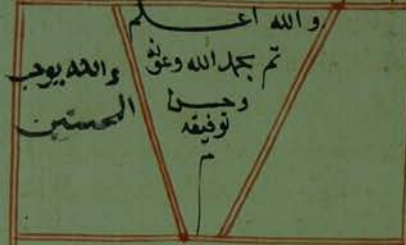 والله اعلم
تم بحمد الله وعونه
وحسن
توفيقه
م
والله يوجب
المحسنين